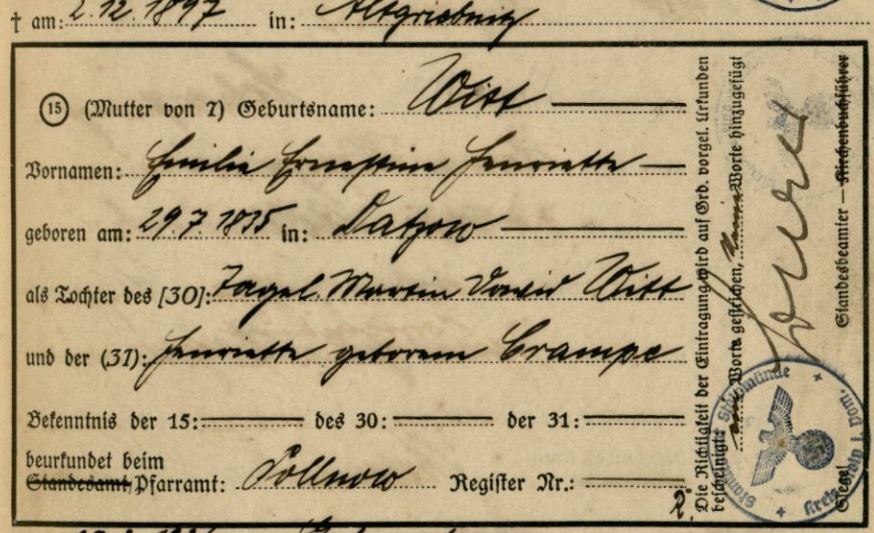 † am: 2.12.1897 in: Altgriebnitz
(15) (Mutter von 7) Geburtsname: Witt
Vornamen: Emilie Ernestine Henriette
geboren am: 29.7.1835 in: Datzow
als Tochter des [30]: Tagel. Martin David Witt
und der (31): Henriette geborene Crampe
Bekenntnis der 15: des 30: der 31:
beurkundet beim
Standesamt, Pfarramt: Pollnow Register Nr.:
2.
Die Richtigkeit der Eintragung wird auf Grd. vorgel. Urkunden
bescheinigt. Worte gestrichen, Worte hinzugefügt
Standesbeamter – Kirchenbuchführer
Siegel
Standesamt Stolpmünde
Kreis Stolp i. Pom.